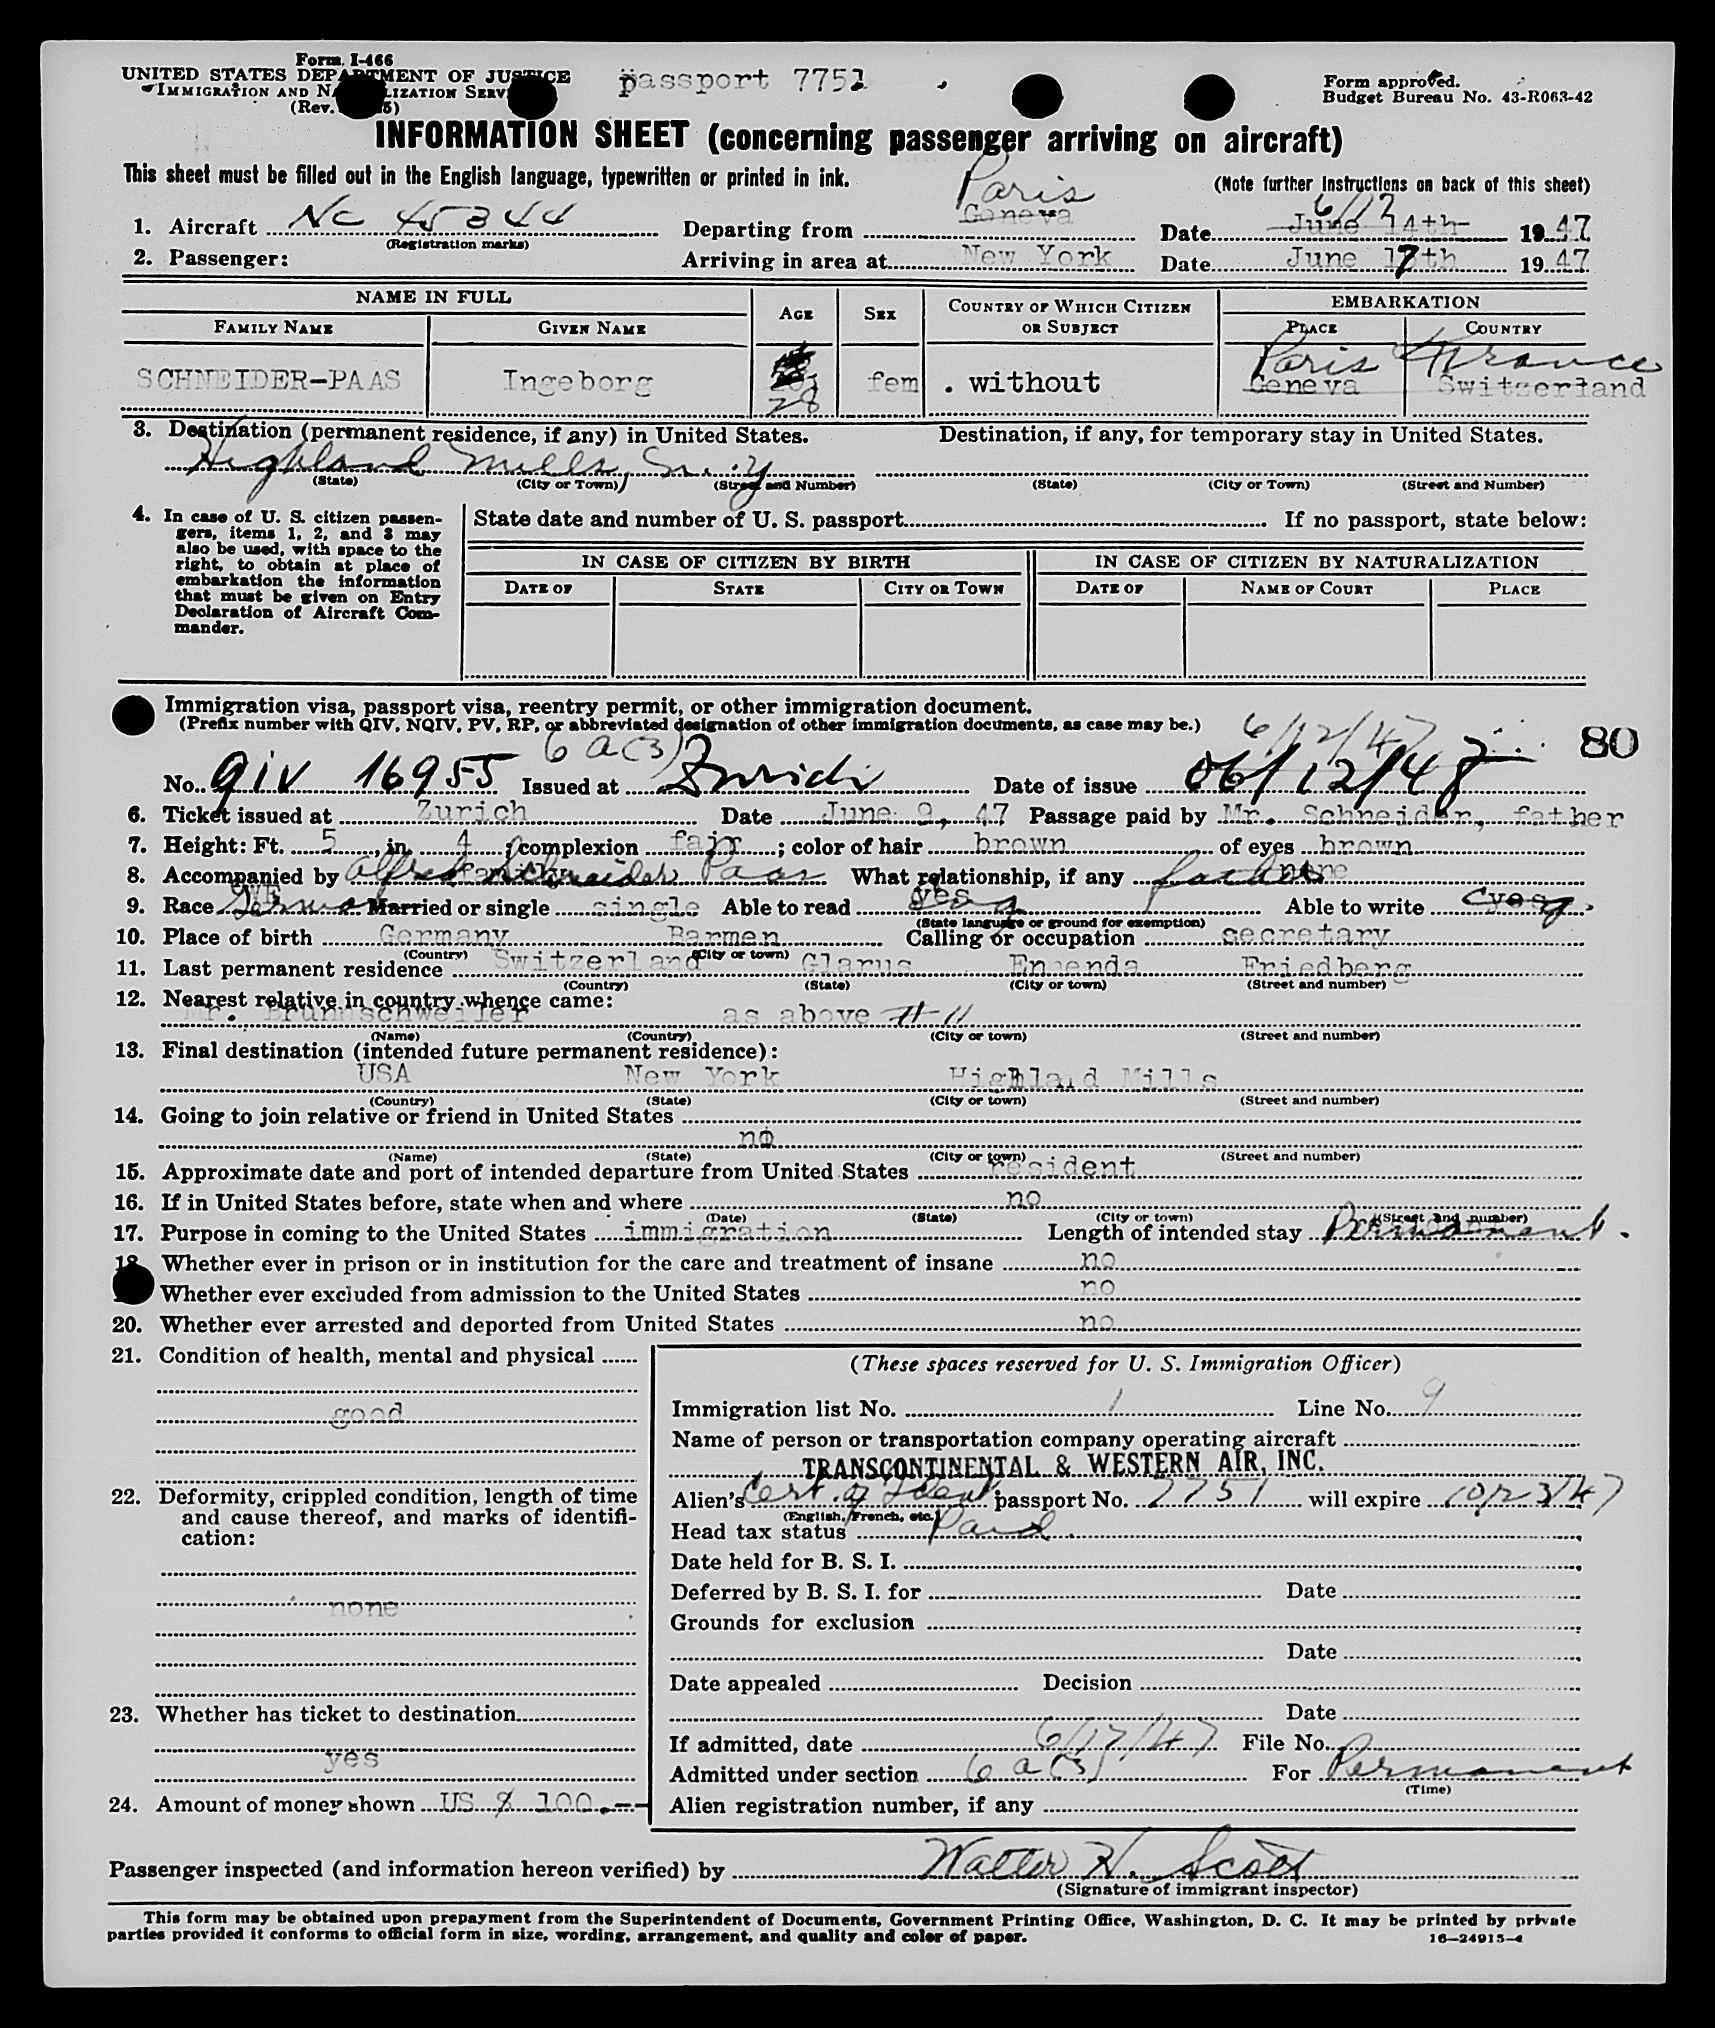 Form I-466
UNITED STATES DEPARTMENT OF JUSTICE
IMMIGRATION AND NATURALIZATION SERVICE
(Rev. 5)
passport 7751
Form approved.
Budget Bureau No. 43-R063-42
INFORMATION SHEET (concerning passenger arriving on aircraft)
This sheet must be filled out in the English language, typewritten or printed in ink.
(Note further instructions on back of this sheet)
Paris 6/17
1. Aircraft NC 45344 Departing from Geneva Date June 14th 1947
(Registration marks)
2. Passenger: Arriving in area at New York Date June 17th 1947
NAME IN FULL AGE SEX COUNTRY OF WHICH CITIZEN OR SUBJECT EMBARKATION
FAMILY NAME GIVEN NAME PLACE COUNTRY
Paris France
SCHNEIDER-PAAS Ingeborg 28 fem . without Geneva Switzerland
3. Destination (permanent residence, if any) in United States. Destination, if any, for temporary stay in United States.
Highland Mills, N.Y
(State) (City or Town) (Street and Number) (State) (City or Town) (Street and Number)
4. In case of U. S. citizen passengers, items 1, 2, and 3 may also be used, with space to the right, to obtain at place of embarkation the information that must be given on Entry Declaration of Aircraft Commander.
State date and number of U. S. passport If no passport, state below:
IN CASE OF CITIZEN BY BIRTH IN CASE OF CITIZEN BY NATURALIZATION
DATE OF STATE CITY OR TOWN DATE OF NAME OF COURT PLACE
Immigration visa, passport visa, reentry permit, or other immigration document.
(Prefix number with QIV, NQIV, PV, RP, or abbreviated designation of other immigration documents, as case may be.)
6 a (3) 6/12/47 80
No. QIV 16955 Issued at Zurich Date of issue 06/12/47
6. Ticket issued at Zurich Date June 9, 47 Passage paid by Mr. Schneider, father
7. Height: Ft. 5, in. 4; complexion fair; color of hair brown of eyes brown
8. Accompanied by Alfred Schneider Paas What relationship, if any father
9. Race German Married or single single Able to read yes Able to write yes
(State language or ground for exemption)
10. Place of birth Germany Barmen Calling or occupation secretary
(Country) (City or town)
11. Last permanent residence Switzerland Glarus Ennenda Friedberg
(Country) (State) (City or town) (Street and number)
12. Nearest relative in country whence came:
Mr. Brunnschweiler as above #11
(Name) (Country) (City or town) (Street and number)
13. Final destination (intended future permanent residence):
USA New York Highland Mills
(Country) (State) (City or town) (Street and number)
14. Going to join relative or friend in United States
no
(Name) (State) (City or town) (Street and number)
15. Approximate date and port of intended departure from United States resident
16. If in United States before, state when and where no
(Date) (State) (City or town) (Street and number)
17. Purpose in coming to the United States immigration Length of intended stay Permanent.
18. Whether ever in prison or in institution for the care and treatment of insane no
Whether ever excluded from admission to the United States no
20. Whether ever arrested and deported from United States no
21. Condition of health, mental and physical
good
22. Deformity, crippled condition, length of time and cause thereof, and marks of identification:
none
23. Whether has ticket to destination
yes
24. Amount of money shown US $ 100.--
(These spaces reserved for U. S. Immigration Officer)
Immigration list No. 1 Line No. 9
Name of person or transportation company operating aircraft
TRANSCONTINENTAL & WESTERN AIR, INC.
Alien's Cert. of Ident passport No. 7751 will expire 10/23/47
(English, French, etc.)
Head tax status Paid
Date held for B. S. I.
Deferred by B. S. I. for Date
Grounds for exclusion
Date
Date appealed Decision
Date
If admitted, date 6/17/47 File No.
Admitted under section 6 a (3) For Permanent
(Time)
Alien registration number, if any
Passenger inspected (and information hereon verified) by Walter H. Scott
(Signature of immigrant inspector)
This form may be obtained upon prepayment from the Superintendent of Documents, Government Printing Office, Washington, D. C. It may be printed by private
parties provided it conforms to official form in size, wording, arrangement, and quality and color of paper.
16—24915-4